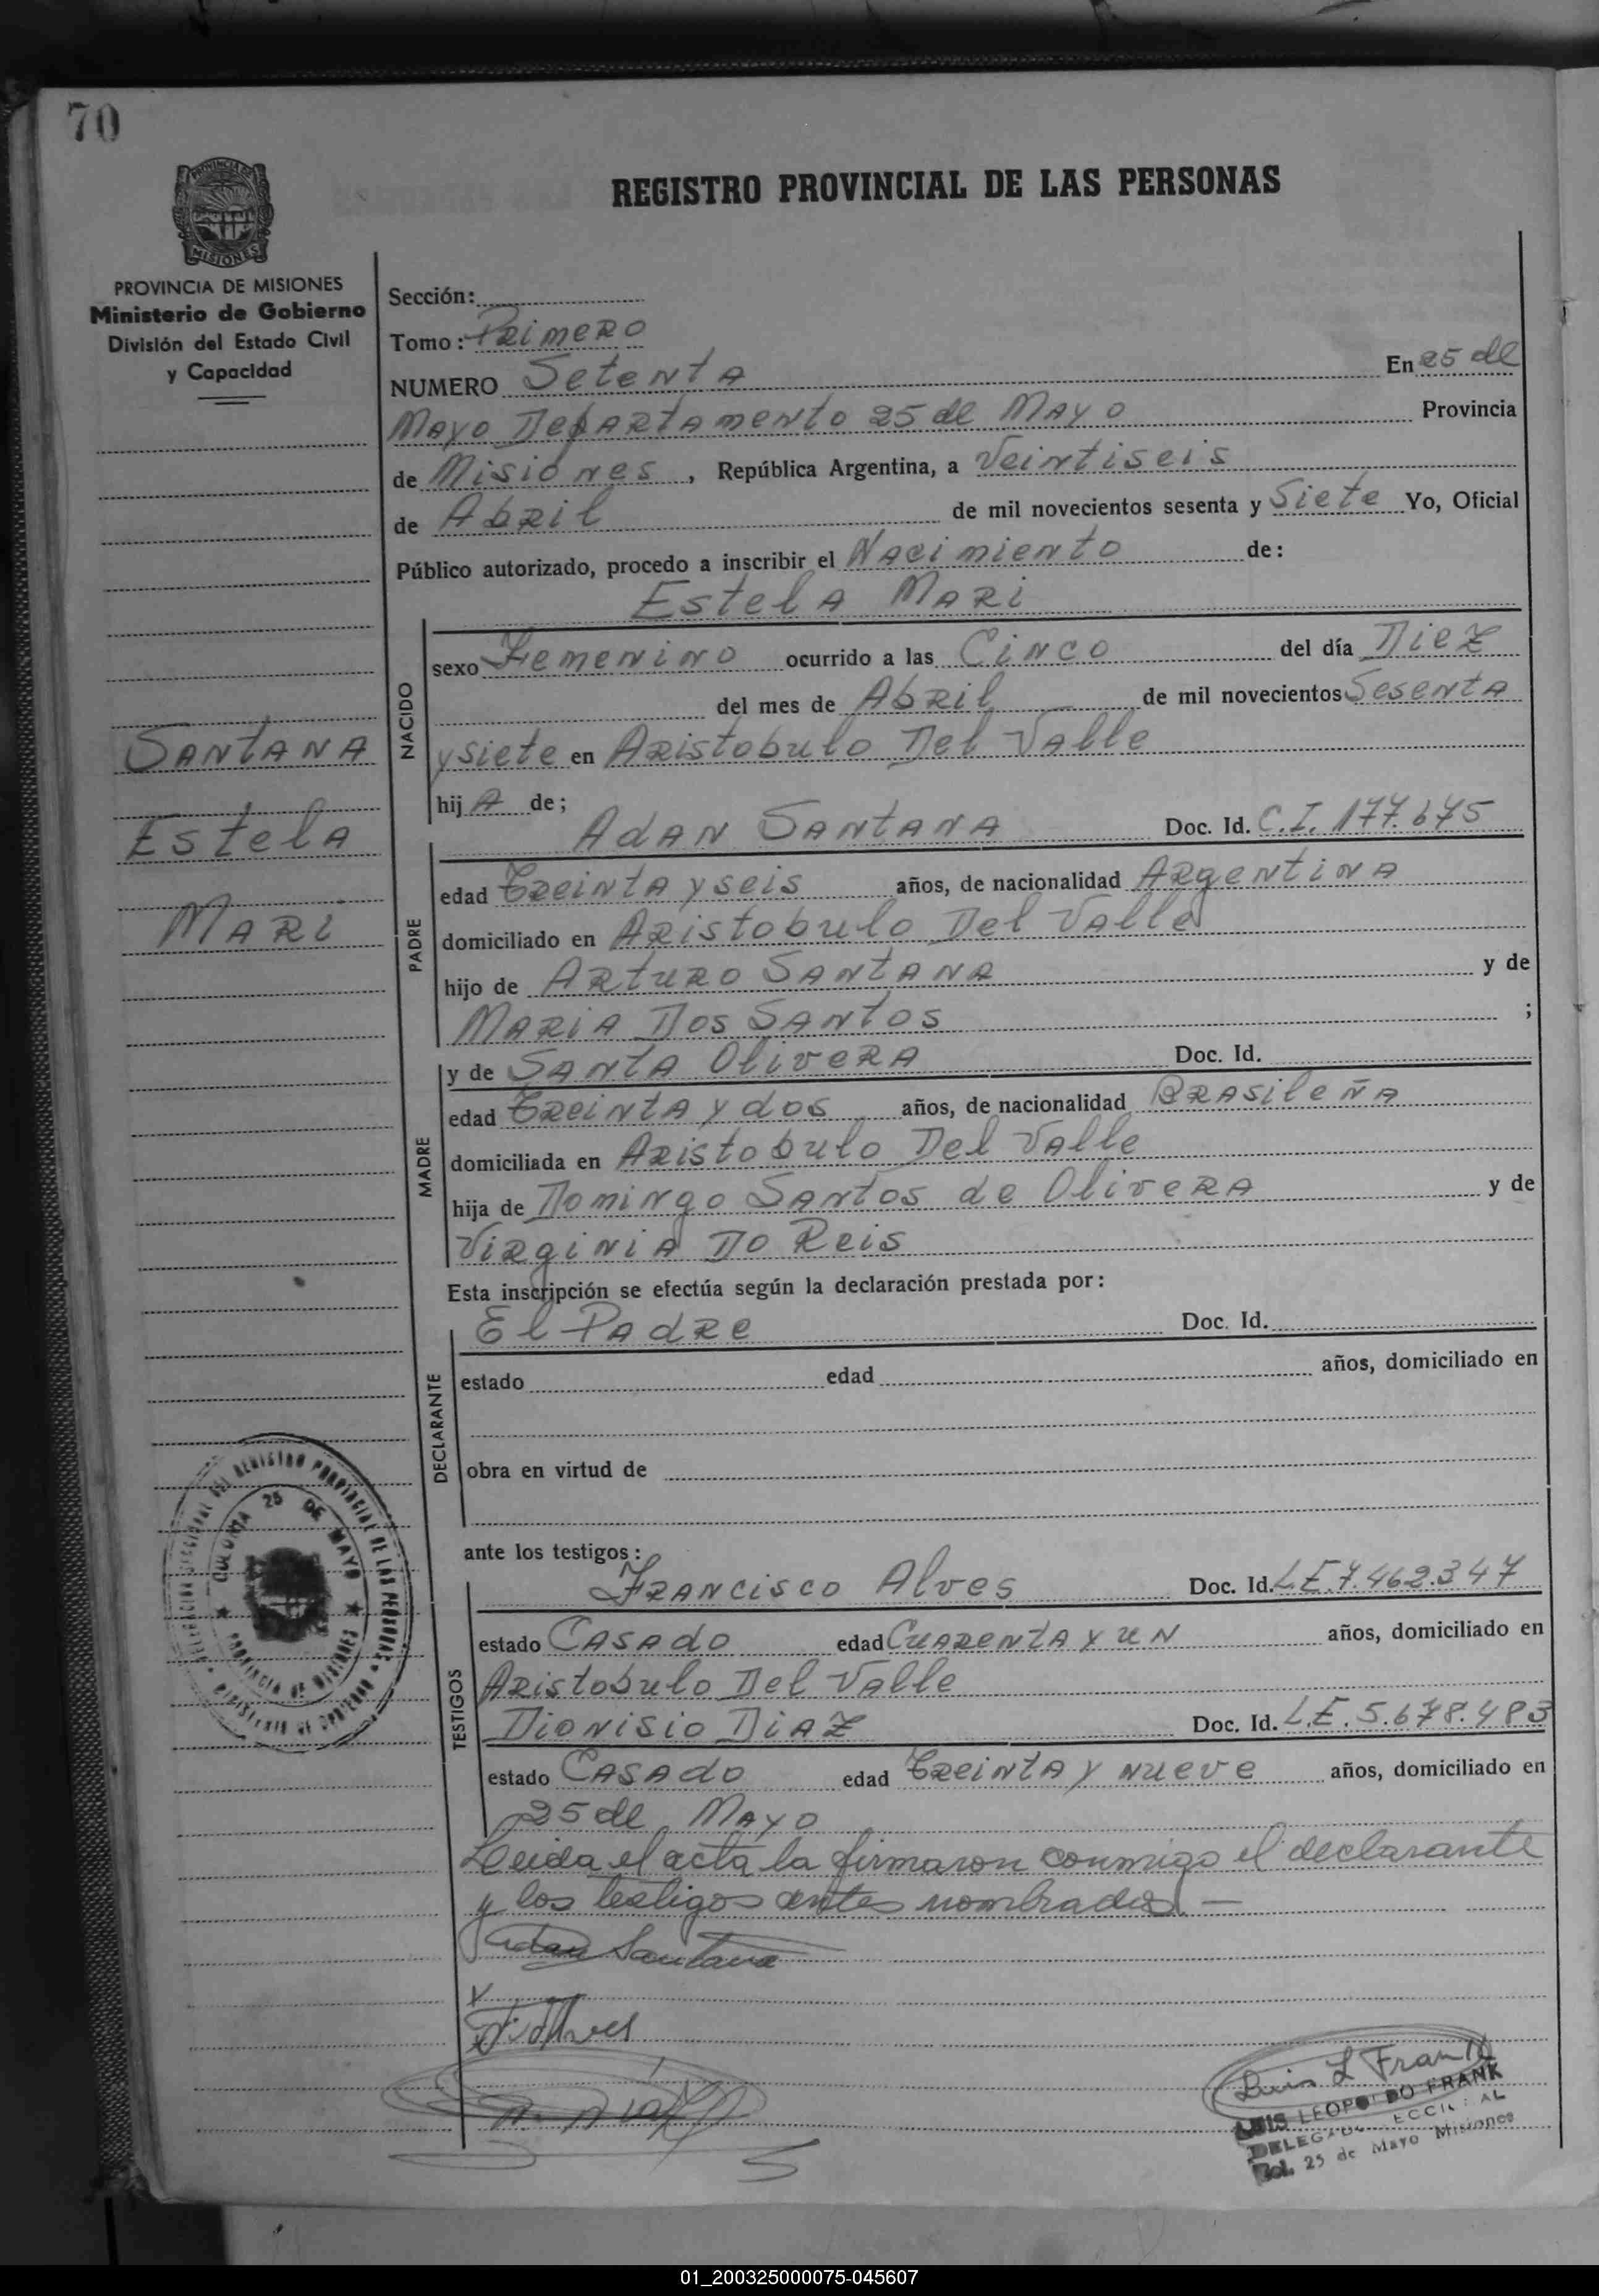 70
PROVINCIA DE MISIONES
REGISTRO PROVINCIAL DE LAS PERSONAS
PROVINCIA DE MISIONES
Ministerio de Gobierno
División del Estado Civil
y Capacidad
Santana
Estela
Mari
Sección:
Tomo: Primero
NUMERO Setenta En 25 de
Mayo Departamento 25 de Mayo Provincia
de Misiones, República Argentina, a Veintiseis
de Abril de mil novecientos sesenta y Siete Yo, Oficial
Público autorizado, procedo a inscribir el Nacimiento de:
Estela Mari
NACIDO
sexo Femenino ocurrido a las Cinco del día Diez
del mes de Abril de mil novecientos Sesenta
y siete en Aristobulo Del Valle
hij A de;
Adan Santana Doc. Id. C.I. 177.675
PADRE
edad Treinta y seis años, de nacionalidad Argentina
domiciliado en Aristobulo Del Valle
hijo de Arturo Santana y de
Maria Dos Santos ;
y de Santa Olivera Doc. Id.
MADRE
edad Treinta y dos años, de nacionalidad Brasileña
domiciliada en Aristobulo Del Valle
hija de Domingo Santos de Olivera y de
Virginia Do Reis
Esta inscripción se efectúa según la declaración prestada por:
El Padre Doc. Id.
DECLARANTE
estado edad años, domiciliado en
obra en virtud de
ante los testigos:
Francisco Alves Doc. Id. L.E. 7.462.347
TESTIGOS
estado Casado edad Cuarenta y un años, domiciliado en
Aristobulo Del Valle
Dionisio Diaz Doc. Id. L.E. 5.678.483
estado Casado edad Treinta y nueve años, domiciliado en
25 de Mayo
Leida el acta la firmaron conmigo el declarante
y los testigos antes nombrados.—
Adan Santana
F. Alves
Luis L Frank
LUIS LEOPOLDO FRANK
Col. 25 de Mayo Misiones
REGISTRO PROVINCIAL DE LAS PERSONAS
COLONIA 25 DE MAYO
PROVINCIA DE MISIONES
MINISTERIO DE GOBIERNO
01_200325000075-045607